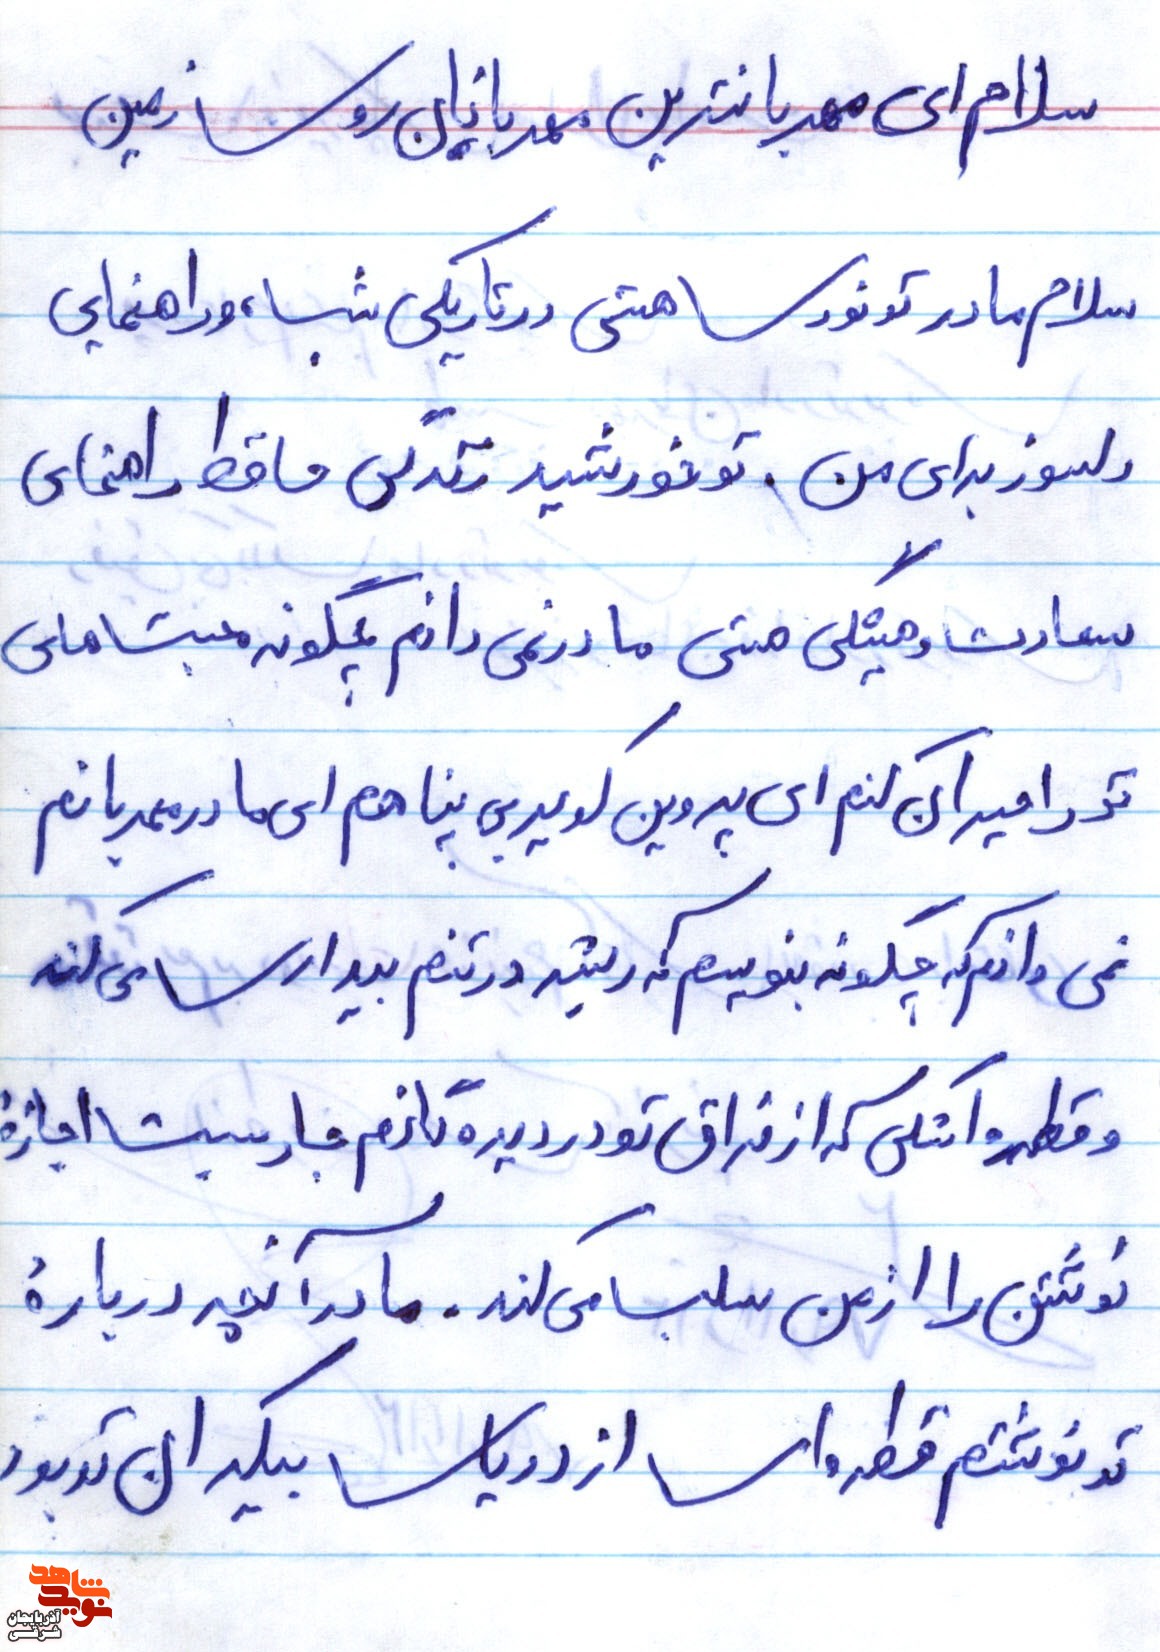 سلام ای مهربانترین مهربانان روی زمین
سلام مادر تو نوری هستی در تاریکی شب، و راهنمایی
دلسوز برای من. تو خورشید زندگی ما و راهنمای
سعادت و همیشگی هستی مادر نمی دانم چگونه محبت های
تو را جبران کنم ای پروین کویر بی پناهم ای مادر مهربانم
نمی دانم که چگونه بنویسم که ریشه در تنم بیداری می کند
و قطره اشکی که از فراق تو در دیدگانم جاریست اجازهٔ
نوشتن را از من سلب می کند. مادر آنچه دربارهٔ
تو نوشتم قطره ای از دریای بیکران تو بود
نوید شاهد
آذربایجان
غربی